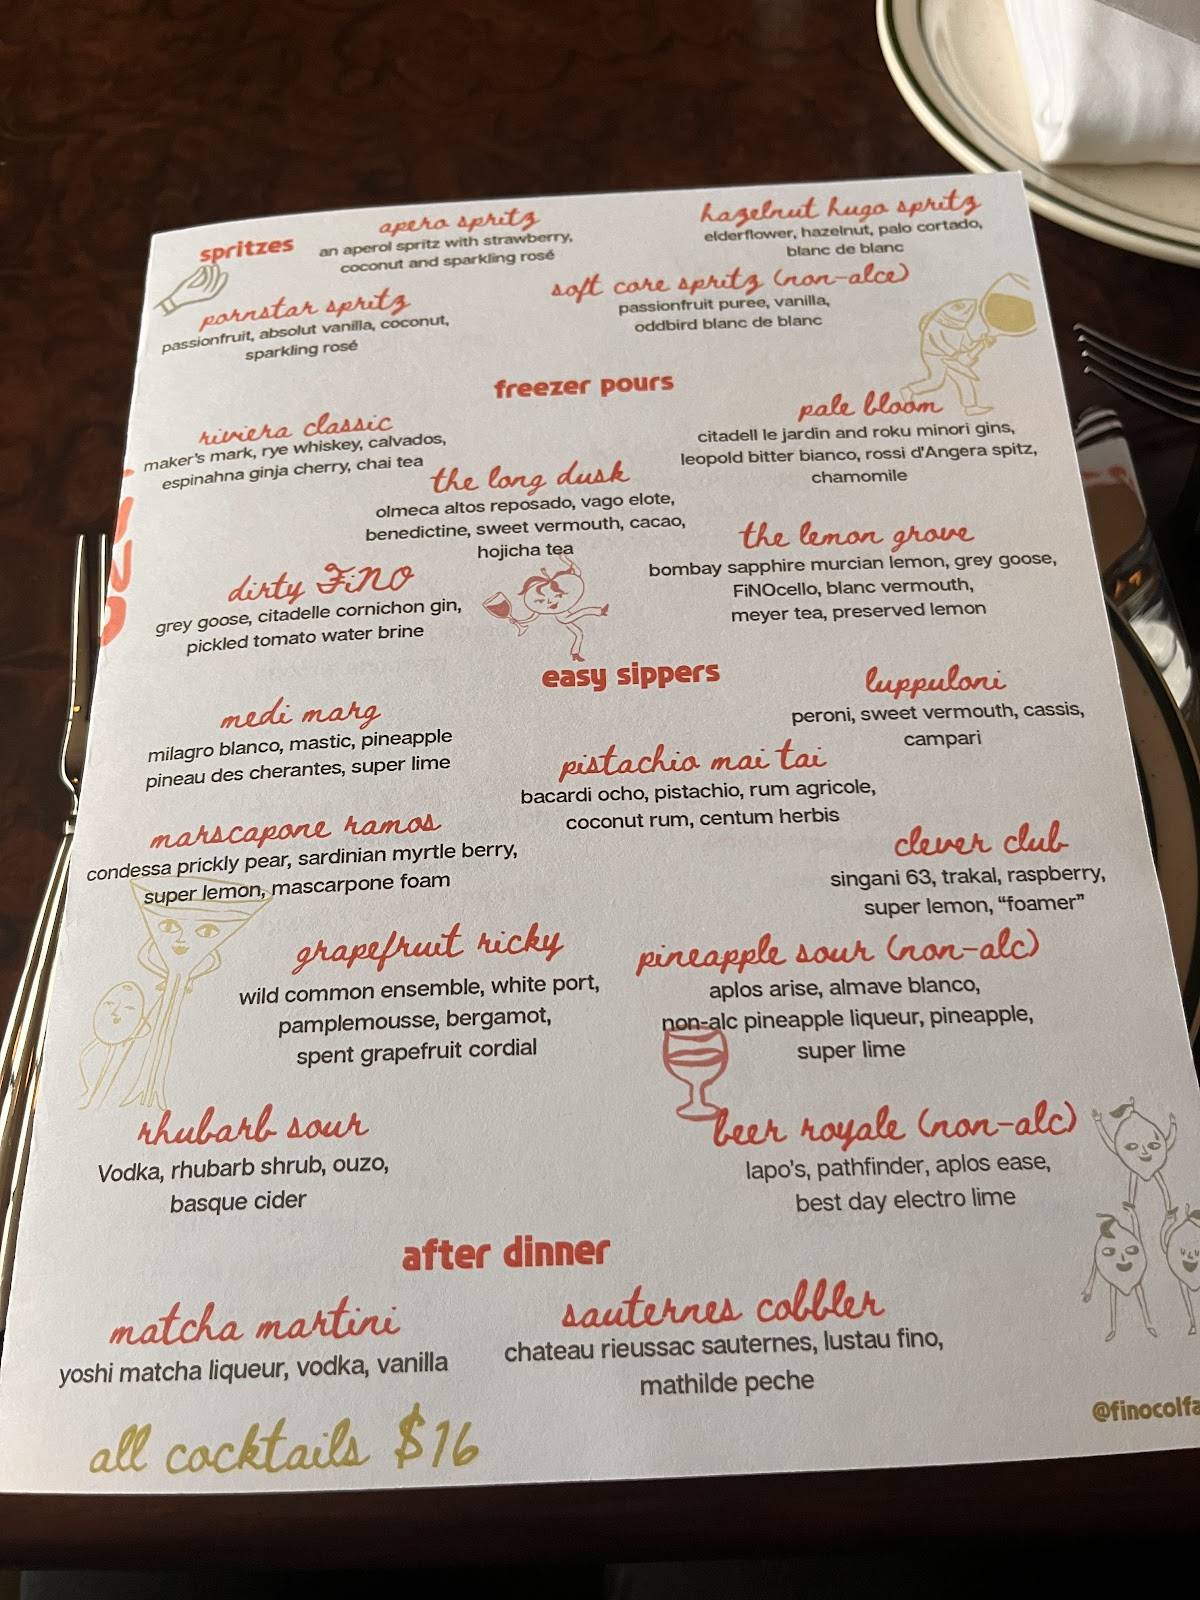 spritzes
apero spritz
an aperol spritz with strawberry,
coconut and sparkling rosé
hazelnut hugo spritz
elderflower, hazelnut, palo cortado,
blanc de blanc
pornstar spritz
passionfruit, absolut vanilla, coconut,
sparkling rosé
soft core spritz (non-alce)
passionfruit puree, vanilla,
oddbird blanc de blanc
freezer pours
riviera classic
maker's mark, rye whiskey, calvados,
espinahna ginja cherry, chai tea
pale bloom
citadell le jardin and roku minori gins,
leopold bitter bianco, rossi d'Angera spitz,
chamomile
the long dusk
olmeca altos reposado, vago elote,
benedictine, sweet vermouth, cacao,
hojicha tea
the lemon grove
bombay sapphire murcian lemon, grey goose,
FiNOcello, blanc vermouth,
meyer tea, preserved lemon
dirty FiNO
grey goose, citadelle cornichon gin,
pickled tomato water brine
easy sippers
medi marg
milagro blanco, mastic, pineapple
pineau des cherantes, super lime
luppuloni
peroni, sweet vermouth, cassis,
campari
pistachio mai tai
bacardi ocho, pistachio, rum agricole,
coconut rum, centum herbis
marscapone ramos
condessa prickly pear, sardinian myrtle berry,
super lemon, mascarpone foam
clever club
singani 63, trakal, raspberry,
super lemon, “foamer”
grapefruit ricky
wild common ensemble, white port,
pamplemousse, bergamot,
spent grapefruit cordial
pineapple sour (non-alc)
aplos arise, almave blanco,
non-alc pineapple liqueur, pineapple,
super lime
rhubarb sour
Vodka, rhubarb shrub, ouzo,
basque cider
beer royale (non-alc)
lapo's, pathfinder, aplos ease,
best day electro lime
after dinner
matcha martini
yoshi matcha liqueur, vodka, vanilla
sauternes cobbler
chateau rieussac sauternes, lustau fino,
mathilde peche
all cocktails $16
@finocolfa